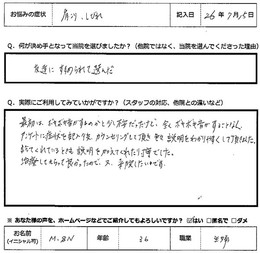 お悩みの症状 肩こり、しびれ 記入日 26年7月15日
Q. 何が決め手となって当院を選びましたか?(他院ではなく、当院を選んでくださった理由)
友達に すすめられて選んだ
Q. 実際にご利用してみていかがですか?(スタッフの対応、他院との違いなど)
最初は、ボキボキ音がするのかと少し不安だったけど、全くボキボキ音がすることなく、
アンケートに症状を記入し、カウンセリングして頂き、説明もわかりやすくして頂けました。
説明を加えてくれたり丁寧でした。
治療してもらって良かったので、又、来院したいです。
※ あなた様の声を、ホームページなどでご紹介してもよろしいですか? ☑はい □匿名で □ダメ
お名前 M.BN 年齢 36 職業
(イニシャル可)